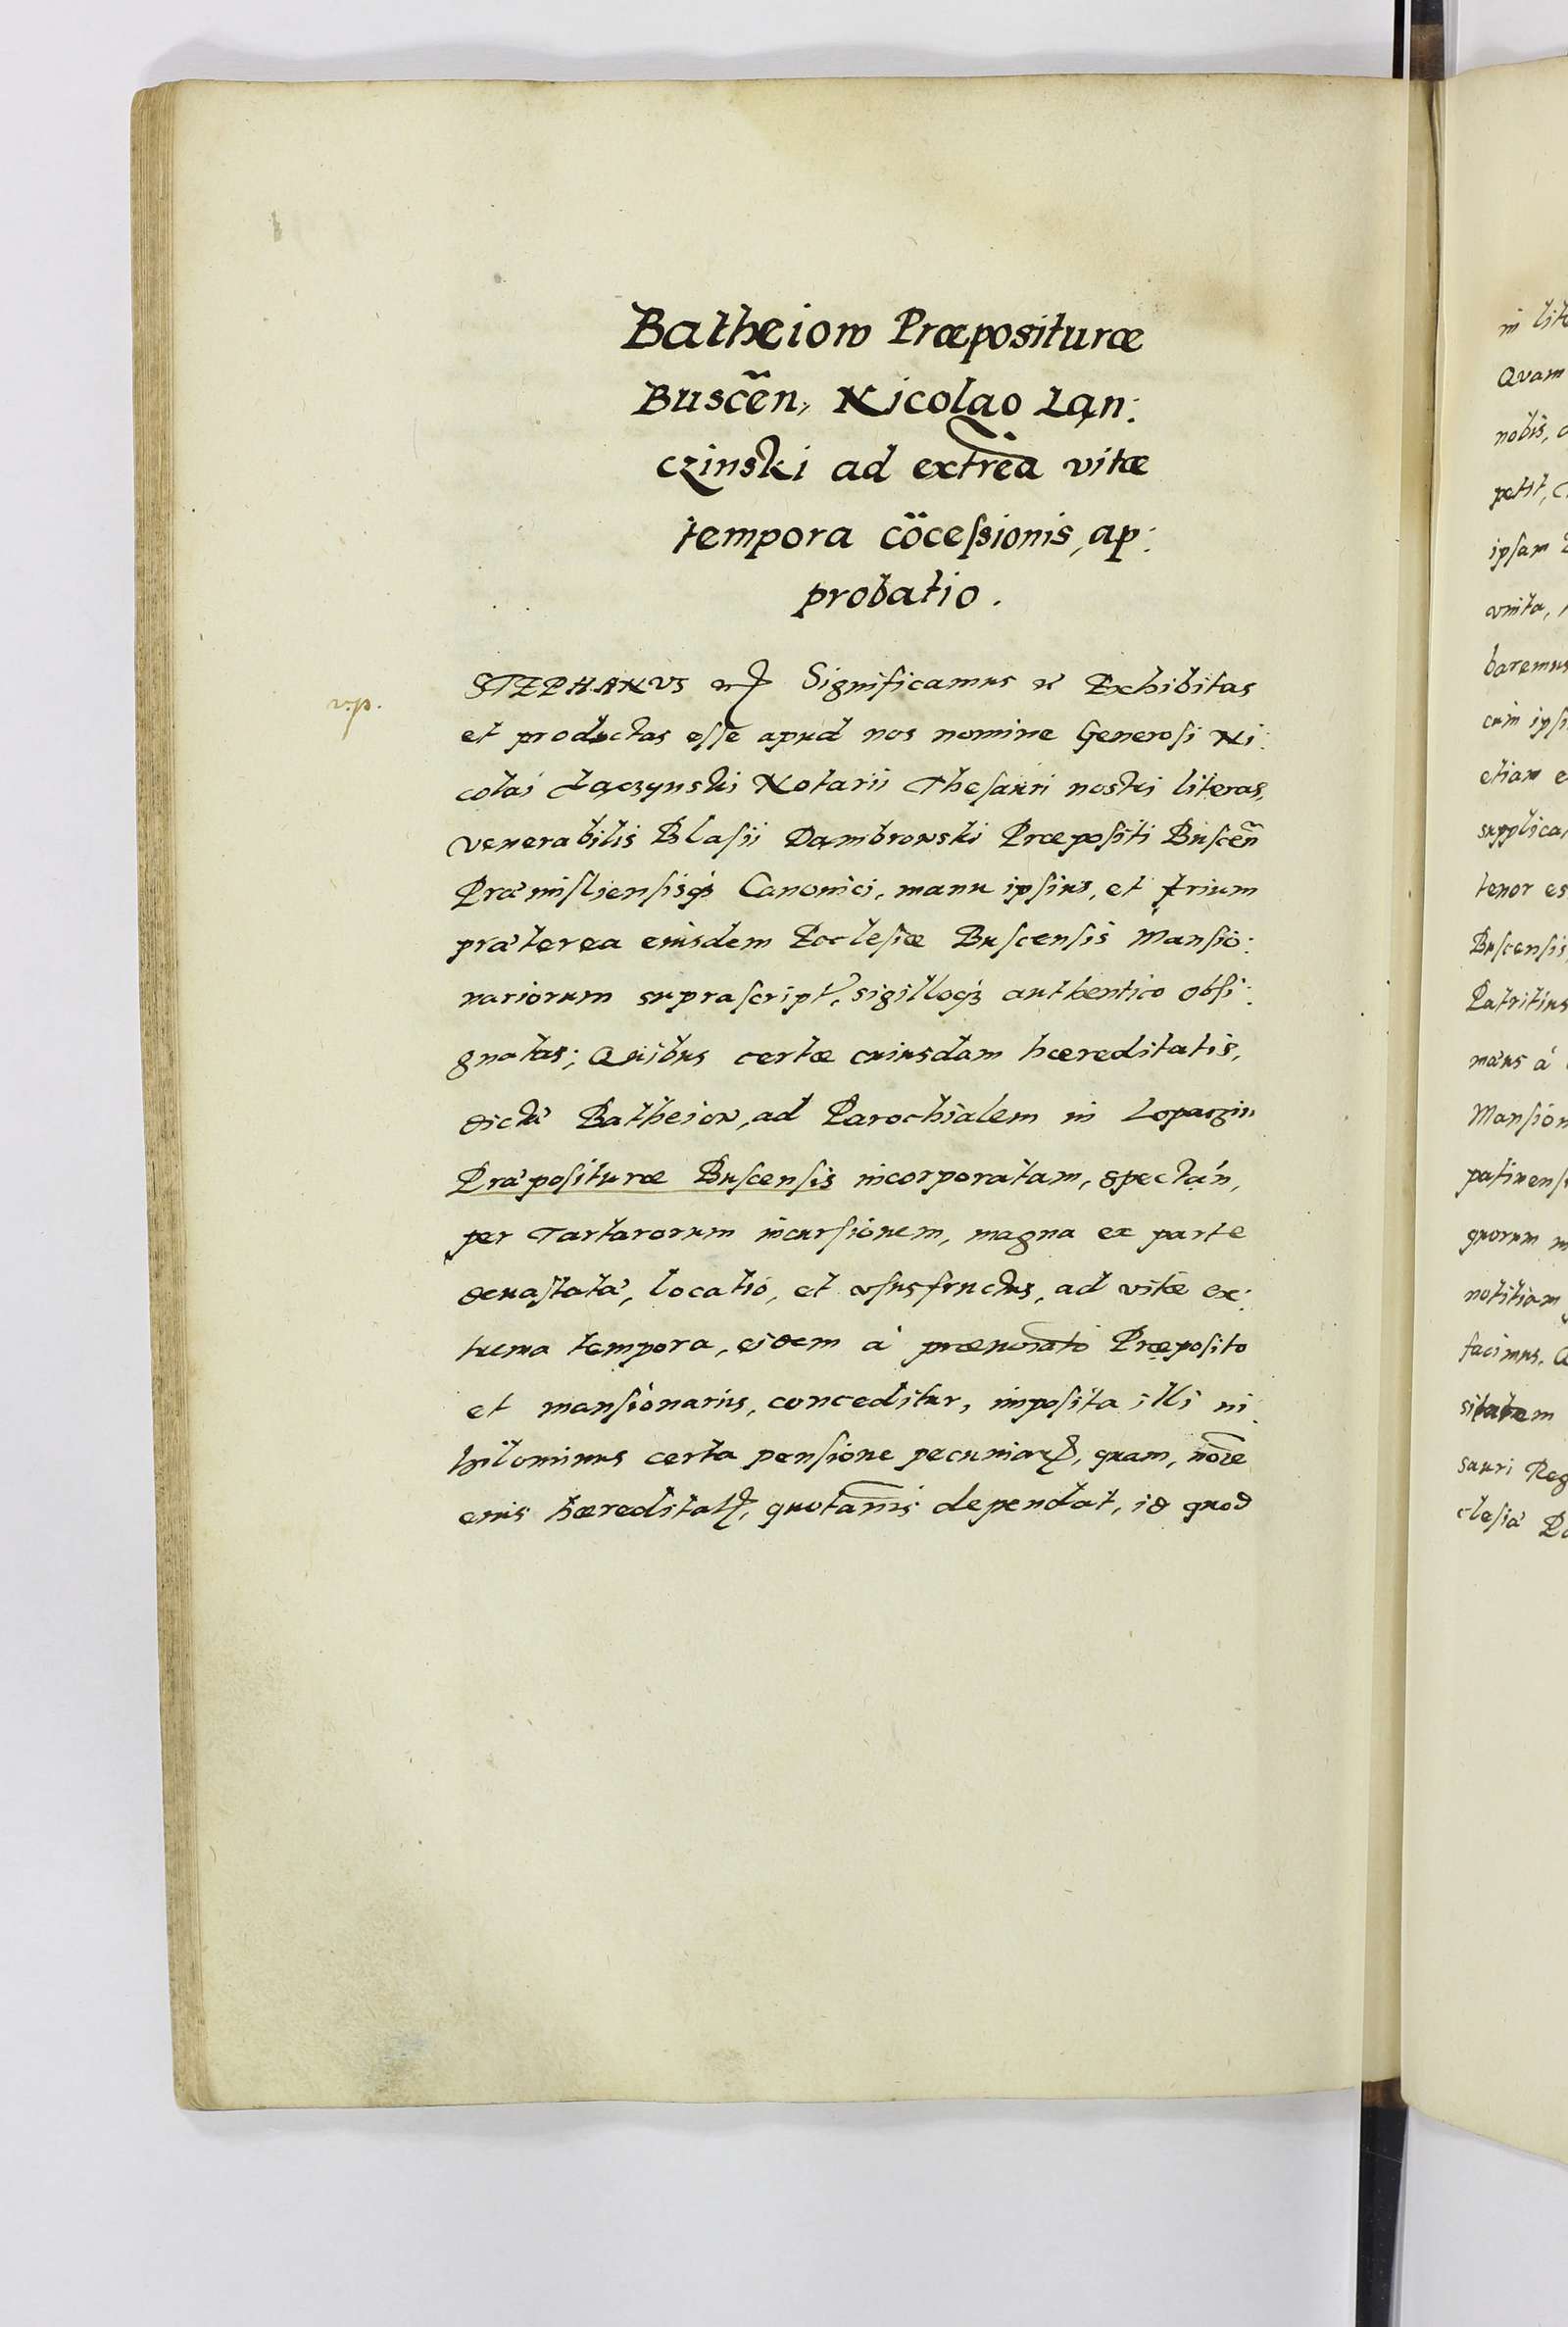 Batheiow Præpositurae
Buscen̄, Nicolao Ląn:
czinski ad extrēa vitæ
tempora cōceſsionis, ap:
probatio.
v.p.
STEPHANVS etc Significamus etc Exhibitas
et productas eſſe apud nos nomine Generoſi Ni:
colai Łączynski Notarii Theſauri nostri literas,
venerabilis Blaſii Dambrowski Præpoſiti Buſcen̄
Præmiſlienſisq́ꝫ Canonici, manu ipſius, et trium
præterea eiusdem Eccleſiæ Buſcensis Manſio:
nariorum supraſcript, sigilloq́ꝫ authentico obſi:
gnatas; Quibus certæ cuiusdam hæreditatis,
dictæ Batheiow, ad Parochialem in Lopaczin
Præpoſituræ Buſcenſis incorporatam, spectań,
per Tartarorum incurſionem, magna ex parte
deuaſtatæ, locatio, et vſusfructus, ad vitæ ex:
trema tempora, eidem à prænoiato Præpoſito
et manſionariis, conceditur, impoſita illi ni:
hilominus certa penſione pecuniar, quam, noīe
eius hæreditat, quotannis dependat, id quod
in lite
Quam
nobis,
petit,
ipſam
vnita,
baremus
cum ipſi
etiam e
supplica
tenor es
Buſcenſis
Patritius
mæus à
Manſion
patinenſi
quorum
notitiam
facimus.
sitatem
sauri Reg
cleſiæ